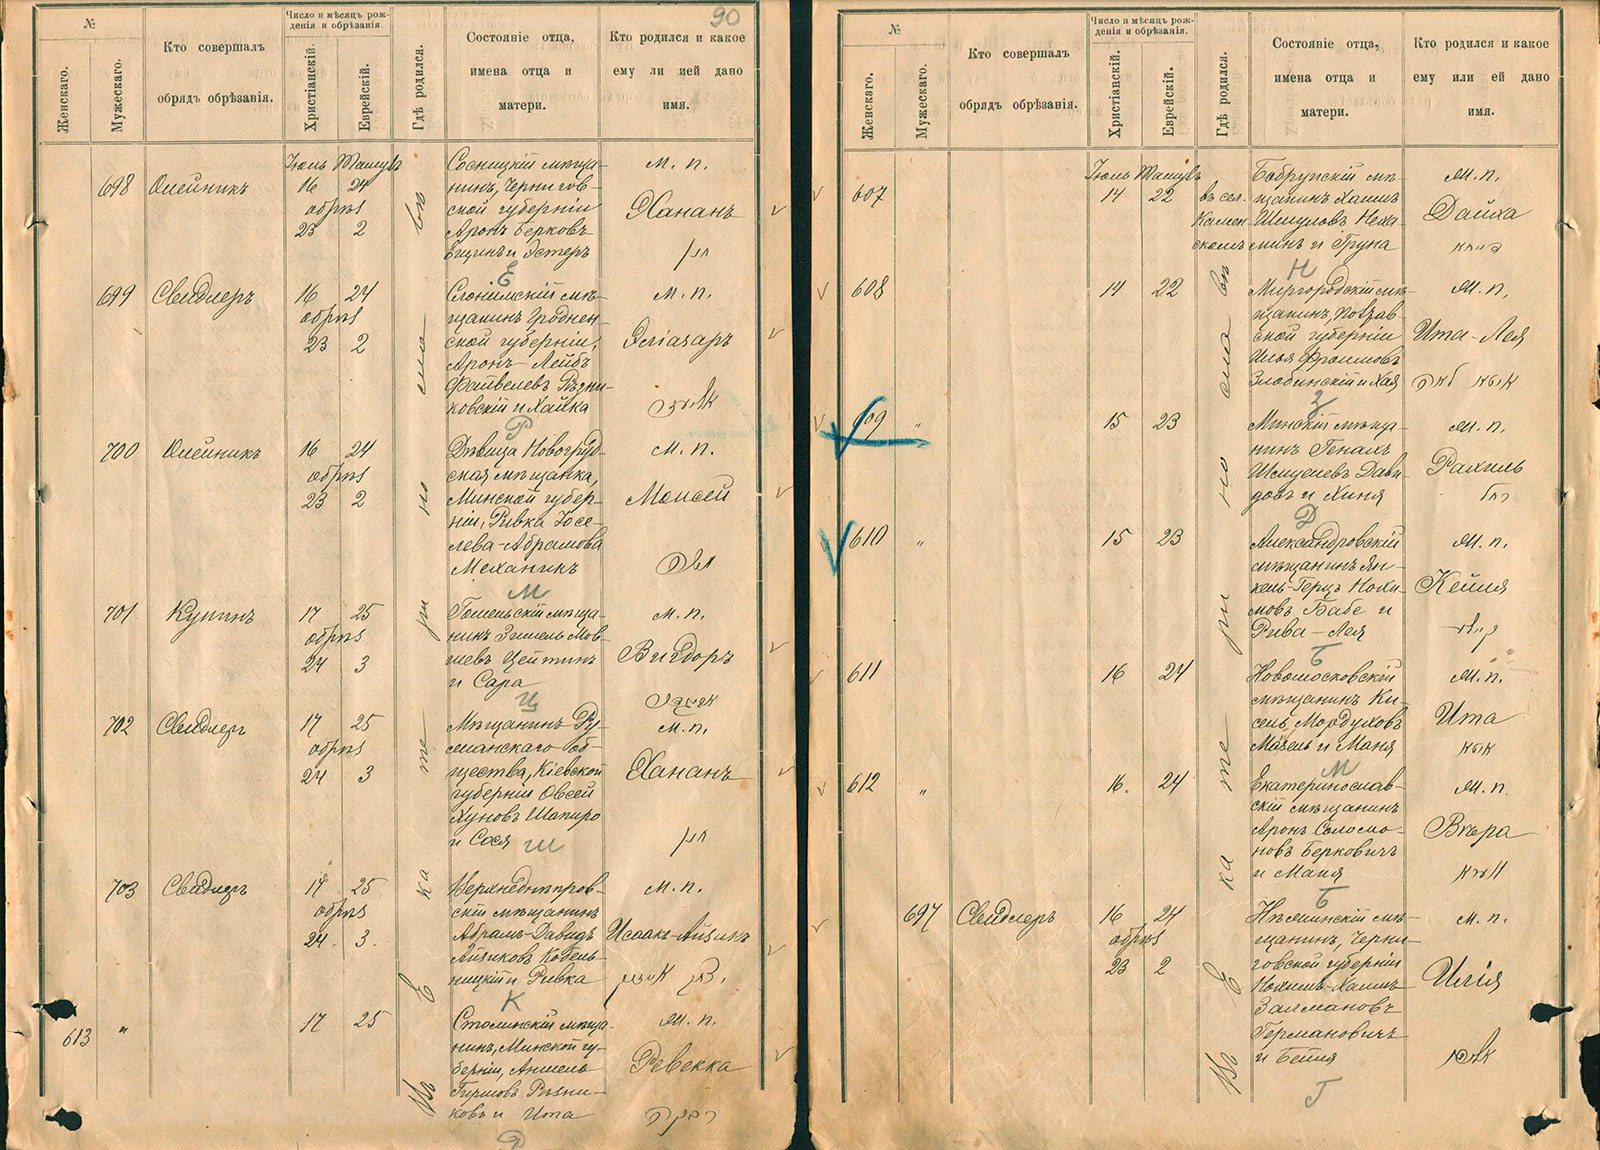 90
№
Женскаго.
Мужескаго.
Кто совершалъ
обрядъ обрѣзанія.
Число и мѣсяцъ рож-
денія и обрѣзанія.
Христіанскій.
Еврейскій.
Гдѣ родился.
Состояніе отца,
имена отца и
матери.
Кто родился и какое
ему ли ией дано
имя.
Въ Екатеринославѣ
698
Олейникъ
Іюль Тамузъ
16 24
обрѣз
23 2
Сосницкій мѣща-
нинъ, Чернигов-
ской губерніи
Аронъ Берковъ
и Эстеръ
м. п.
Хананъ
חנן
Е
699
Свидлеръ
16 24
обрѣз
23 2
Слонимскій мѣ-
щанинъ Гроднен-
ской губерніи,
Аронъ-Лейбъ
Файвелевъ Рѣзни-
ковскій и Хайка
м. п.
Эліазаръ
Р
700
Олейникъ
16 24
обрѣз
23 2
Дѣвица Новогруд-
ская мѣщанка,
Минской губер-
ніи, Ривка Іосе-
лева-Абрамова
Механикъ
м. п.
Моисей
משה
М
701
Купинъ
17 25
обрѣз
24 3
Гомельскій мѣща-
нинъ Зисель Мов-
шевъ Цейтинъ
и Сара
м. п.
Вигдоръ
Ц
702
Свидлеръ
17 25
обрѣз
24 3
Мѣщанинъ Ру-
манскаго об-
щества, Кіевской
губерніи Овсей
Хуновъ Шапиро
и Сося
м. п.
Хананъ
חנן
Ш
703
Свидлеръ
17 25
обрѣз
24. 3.
Верхнеднѣпров-
скій мѣщанинъ
Абрамъ-Давидъ
Айзиковъ Кобель-
ницкій и Ривка
м. п.
Исаакъ-Айзикъ
יצחק אייזיק
К
613
"
17 25
Столинскій мѣща-
нинъ, Минской гу-
берніи, Аншель
Гиршовъ Рѣзни-
ковъ и Ита
м. п.
Ревекка
רבקה
Р
№
Женскаго.
Мужескаго.
Кто совершалъ
обрядъ обрѣзанія.
Число и мѣсяцъ рож-
денія и обрѣзанія.
Христіанскій.
Еврейскій.
Гдѣ родился.
Состояніе отца,
имена отца и
матери.
Кто родился и какое
ему или ей дано
имя.
Въ Екатеринославѣ
607
Іюль Тамузъ
14 22
въ сел.
Камен-
скомъ
Бобруйскій мѣ-
щанинъ Хаимъ
Шмуловъ Неха-
минъ и Груня
м. п.
Дайха
Н
608
14 22
Миргородскій мѣ-
щанинъ, Полтав-
ской губерніи
Илья Фроимовъ
Злобинскій и Хая
м. п.
Ита-Лея
איטא לאה
З
609
"
15 23
Минскій мѣща-
нинъ Генахъ
Шмуелевъ Дави-
довъ и Хиня
м. п.
Рахиль
רחל
Д
610
"
15 23
Александровскій
мѣщанинъ Ян-
кель-Герцъ Нохи-
мовъ Бабе и
Рива-Лея
м. п.
Кейля
Б
611
16 24
Новомосковскій
мѣщанинъ Ки-
сель Мордуховъ
Мазель и Маня
м. п.
Ита
איטא
М
612
"
16. 24
Екатеринослав-
скій мѣщанинъ
Аронъ Соломо-
новъ Берковичъ
и Маня
м. п.
Вѣра
Б
697
Свидлеръ
16 24
обрѣз
23 2
Нѣжинскій мѣ-
щанинъ, Черни-
говской губерніи
Нохимъ-Хаимъ
Залмановъ
Германовичъ
и Бейля
м. п.
Илія
Г